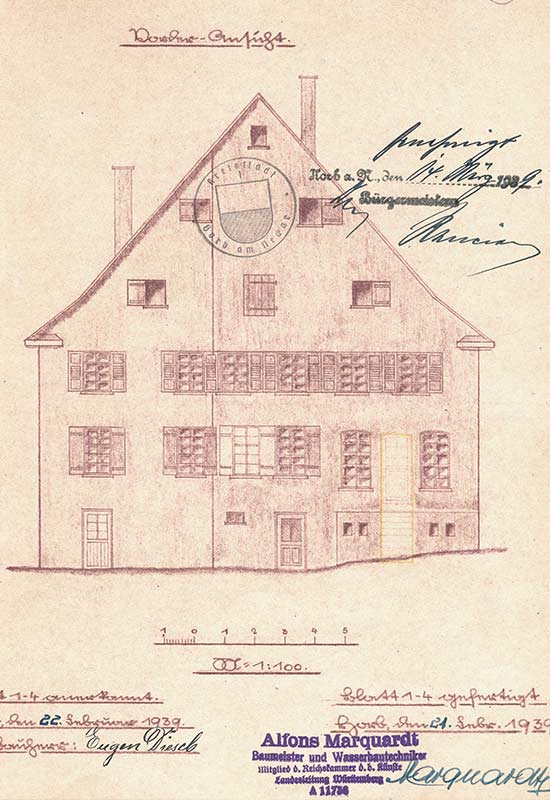 Vorder-Ansicht.
genehmigt
Horb a. N., den 14. März 1939.
Bürgermeister
Kreisstadt
Horb am Neckar
1 0 1 2 3 4 5
M = 1:100.
t 1-4 anerkannt.
, den 22. Februar 1939.
Bauherr: Eugen Dieseb
Blatt 1-4 gefertigt
Horb, den 21. Febr. 1939
Alfons Marquardt
Baumeister und Wasserbautechniker
Mitglied d. Reichskammer d. b. Künste
Landesleitung Württemberg
A 11736
Marquardt